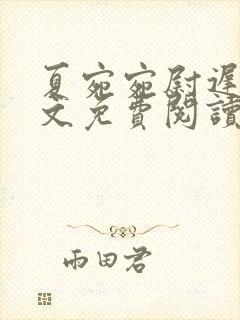 夏宛宛尉遲
文免費閱讀
雨田君